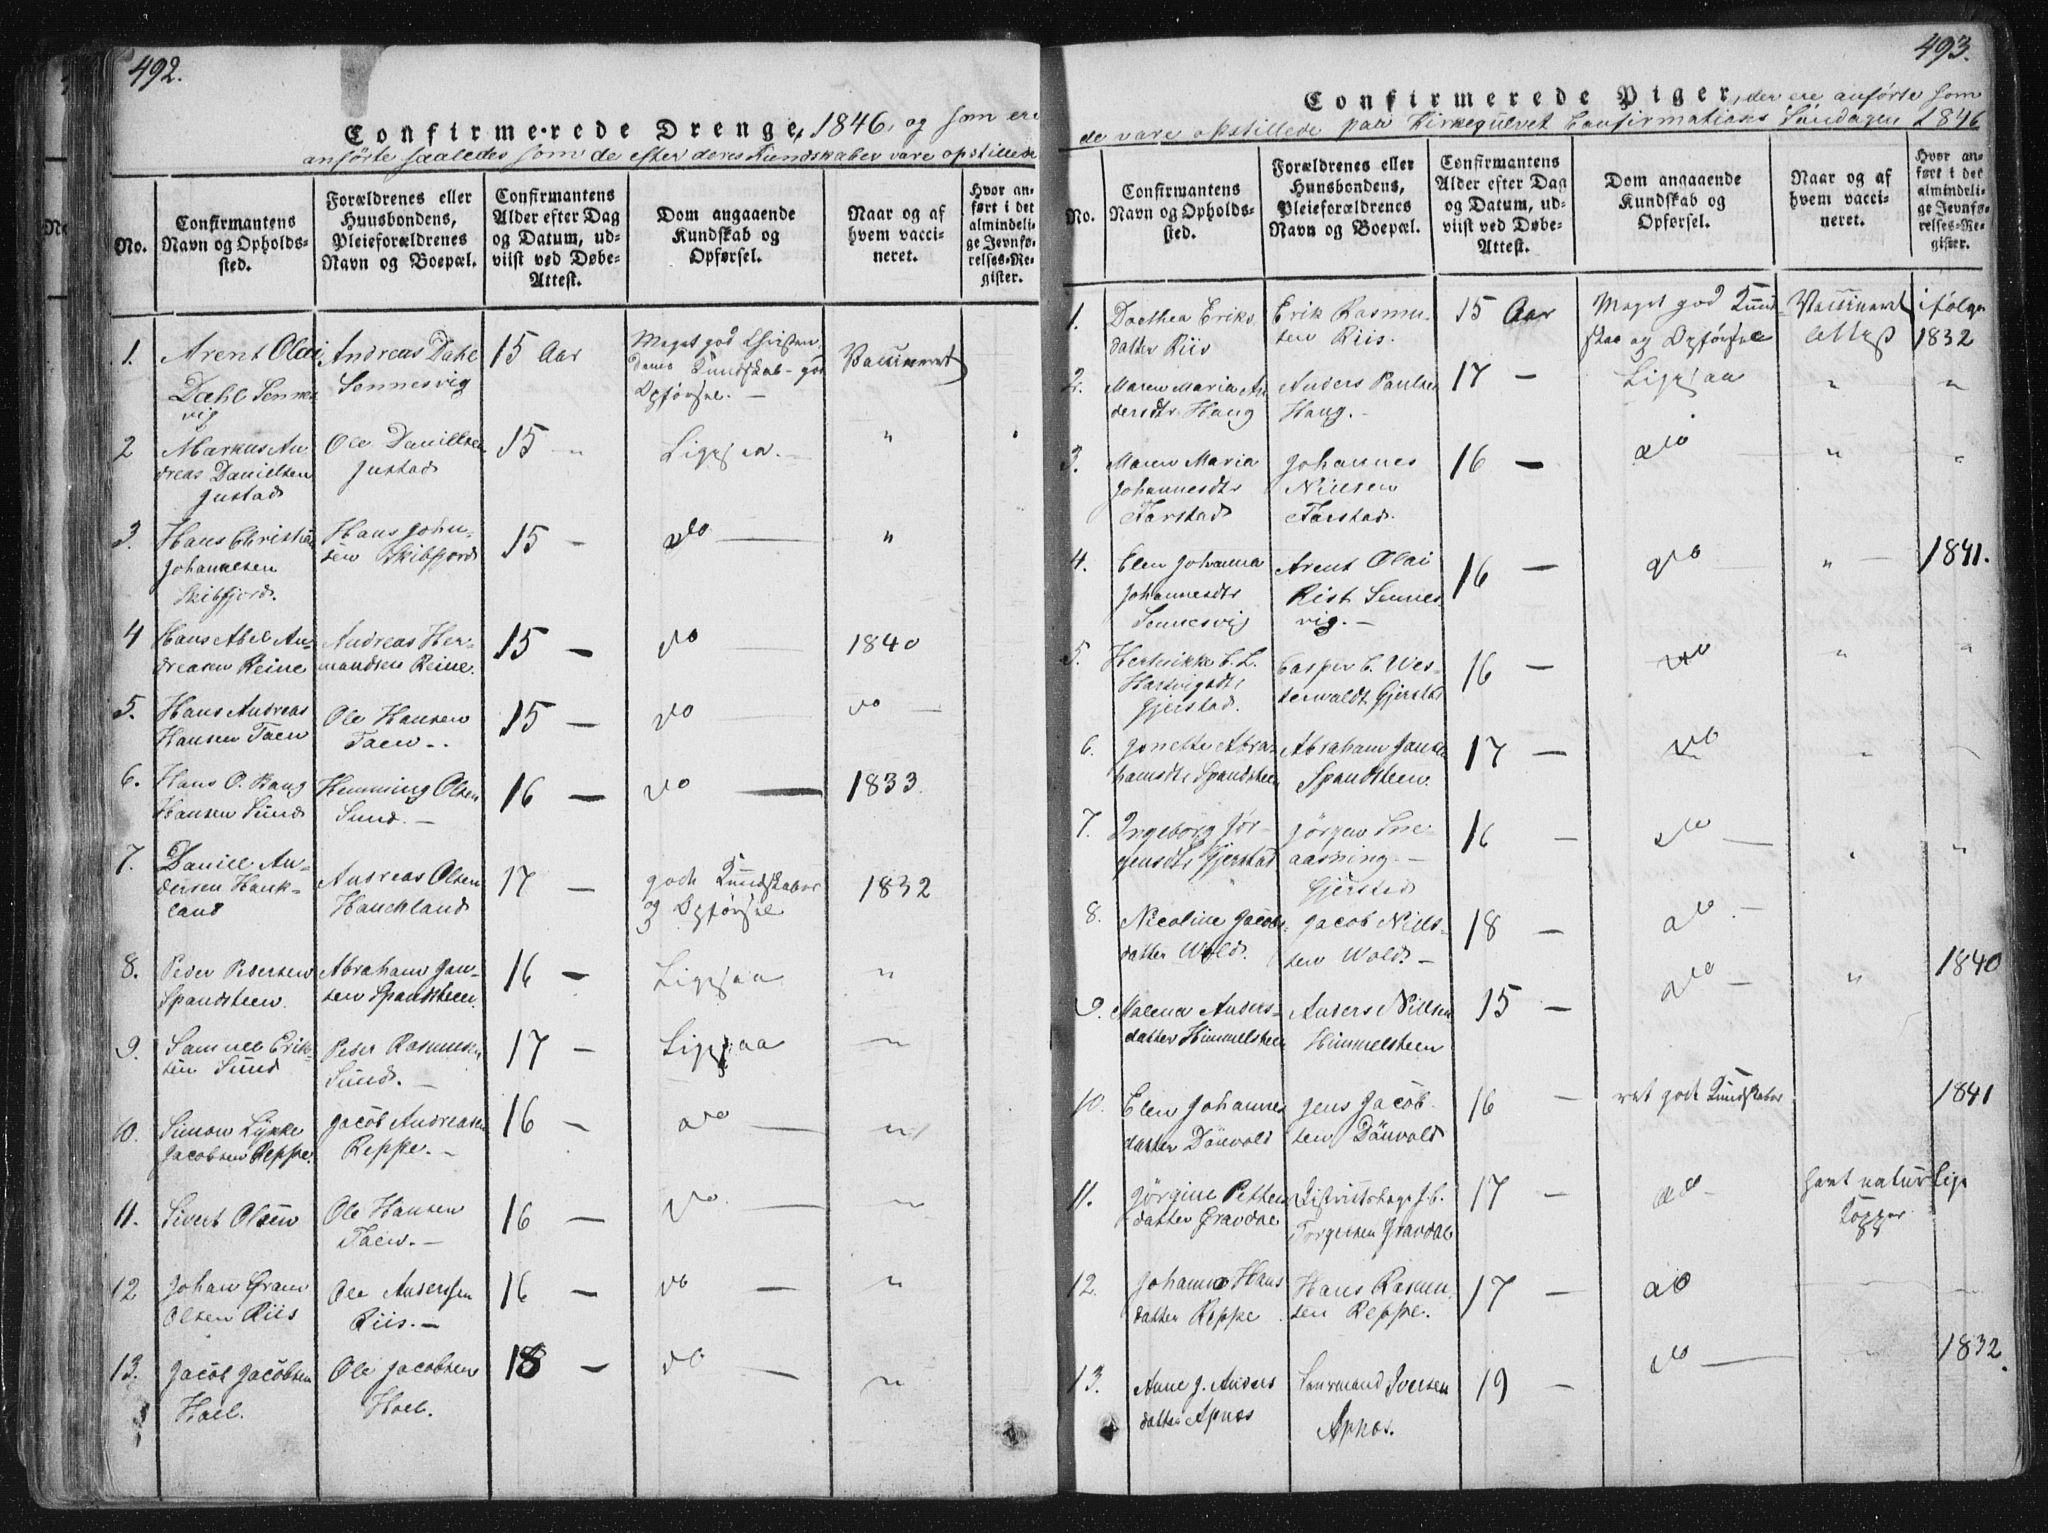 492.
Confirmerede Drenge, 1846, og som ere
anførte saaledes som de efter deres Kundskaber vare opstillede
No.
Confirmantens
Navn og Opholds-
sted.
Forældrenes eller
Huusbondens,
Pleieforældrenes
Navn og Boepæl.
Confirmantens
Alder efter Dag
og Datum, ud-
viist ved Døbe-
Attest.
Dom angaaende
Kundskab og
Opførsel.
Naar og af
hvem vacci-
neret.
Hvor an-
ført i det
almindeli-
ge Jevnfø-
relses-Re-
gister.
1. Arent Olai
Dahl Sennes
vig
Andreas Dahl
Sennesvig
15 Aar
Meget god Christen
doms Kundskab - god
Opførsel. —
Vaccineret
2 Markus An
dreas Danielsen
Justad
Ole Danielsen
Justad
15 "
Ligesaa. —
"
3. Hans Christian
Johannesen
Skibfjord.
Hans John-
sen Skibfjord
15 —
do —
"
4 Hans Abel An-
dreasen Reine
Andreas Her-
mandsen Reine.
15 —
do —
1840
5. Hans Andreas
Hansen Taen
Ole Hansen
Taen -.
15 —
do —
do —
6. Hans O. Bang
Hansen Sund
Hemming Olsen
Sund. —
16 —
do —
1833.
7. Daniel An-
dersen Hauk-
land
Andreas Olsen
Hauchland
17 —
godt Kundskaber
og Opførsel
1832
8. Peder Pedersen
Spandsteen.
Abraham Jan-
sen Spandsteen.
16 —
Ligesaa
"
9. Samuel Erik-
sen Sund
Peder Rasmusen
Sund. —
17 —
Ligesaa
"
10. Simon Lykke
Jacobsen Reppe.
Jacob Andreasen
Reppe. —
16 —
do —
"
11. Sivert Olsen
Ole Hansen
Taen. —
16 —
do —
"
12 Johan Gram
Olsen Riis
Ole Anderssen
Riis. —
16 —
do —
"
13. Jacob Jacobsen
Hoel.
Ole Jacobsen
Hoel.
18 —
do —
"
493.
Confirmerede Piger, der ere anførte som
de vare opstillede paa Kirkegulvet Confirmations Søndagen 1846
No.
Confirmantens
Navn og Opholds-
sted.
Forældrenes eller
Hunsbondens,
Pleieforældrenes
Navn og Boepæl.
Confirmantens
Alder efter Dag
og Datum, ud-
viist ved Døbe-
Attest.
Dom angaaende
Kundskab og
Opførsel.
Naar og af
hvem vacci-
neret.
Hvor an-
ført i det
almindeli-
ge Jevnfø-
relses-Re-
gister.
1. Dorthea Eriks
datter Riis
Erik Rasmu-
sen Riis.
15 Aar
Meget god Kund-
skab og Opførsel
Vaccineret ifølge
Attest 1832
2. Maren Maria An
dersdtr Haug
Anders Paulsen
Haug. —
17 —
Ligesaa
"
"
3. Maren Maria
Johannesdtr
Farstad
Johannes
Nielsen
Farstad.
16 —
do
"
"
4. Elen Johanna
Johannesdtr
Sennesvig
Arent Olai
Rist Sennes
vig. —
16 —
do
" —
1841.
5. Henrikke C. L.
Hartvigsdtr
Gjerstad.
Casper C. Wes-
terwaldt Gjerstad
16 —
do
"
"
6. Jonette Abra
hamsdtr Spandsteen
Abraham Jansen
Spandsteen.
17 —
do
"
"
7. Ingeborg Jør-
gensdtr Gjerstad
Jørgen
aasning. —
Gjerstad
16 —
do
"
"
8. Nicoline Jacobs-
datter Wold.
Jacob Niels-
sen Wold. —
18 —
do —
9. Malena Anders-
datter Himmelsteen
Anders Nielsen
Himmelsteen
15 —
do —
"
1840
10. Elen Johannes
datter Dönvold
Jens Jacob-
sen Dönvold
16 —
ret godt Kundskaber
1841
11. Jørgine Petters
datter Gravdal
J. C.
Torgersen Gravdal
17 —
do —
havt naturlige
Kopper
12. Johanna Hans
datter Reppe
Hans Rasmu
sen Reppe.
17 —
do
—
"
13. Anne J. Anders
datter Apnæs
Laurmand Iversen
Apnæs.
19 —
do —
"
1832.